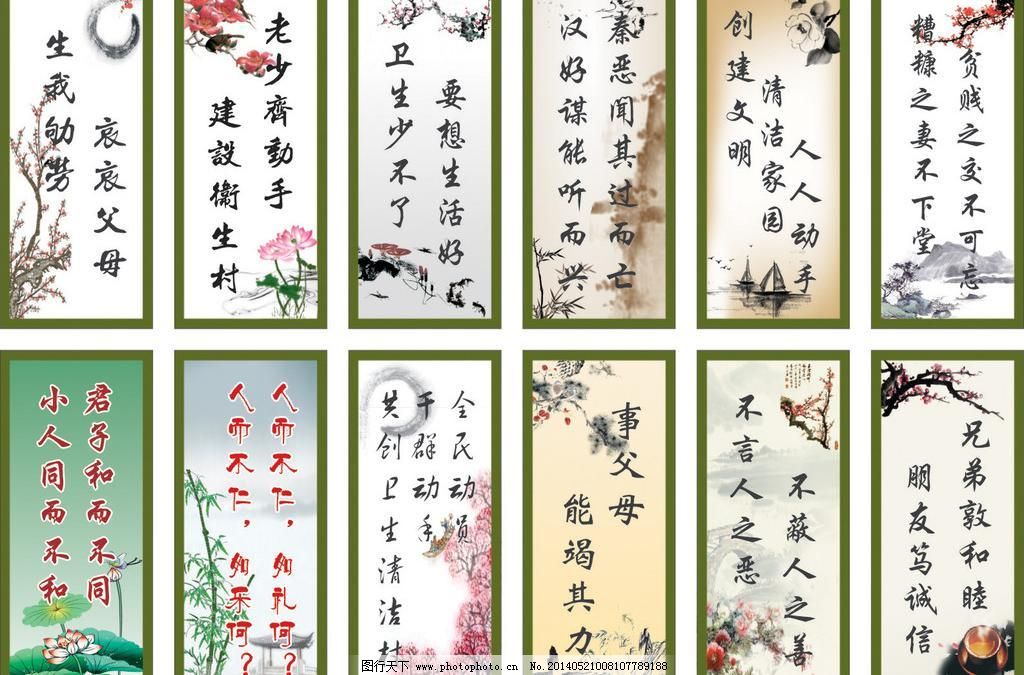 哀哀父母
生我劬劳
老少齊動手
建設衛生村
要想生活好
卫生少不了
秦恶闻其过而亡
汉好谋能听而兴
人人动手
清洁家园
创建文明
贫贱之交不可忘
糟糠之妻不下堂
君子和而不同
小人同而不和
人而不仁，如礼何？
人而不仁，如乐何？
全民动员
干群动手
共创卫生清洁村
事父母
能竭其力
不蔽人之善
不言人之恶
兄弟敦和睦
朋友笃诚信
图行天下 www.photophoto.cn No.20140521008107789188